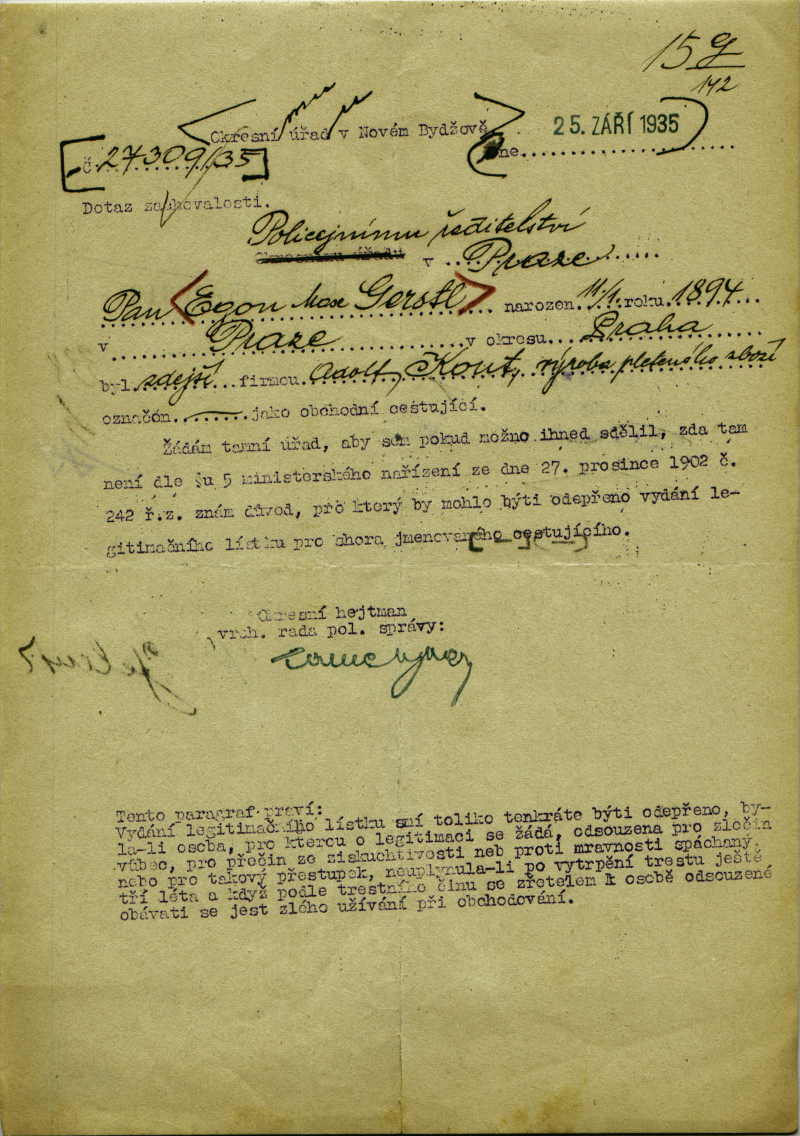 15 g
142
Okresní úřad v Novém Bydžově.
dne 25. ZÁŘÍ 1935
Č. 27309/35
Dotaz zachovalosti.
Policejnímu ředitelství
Okresnímu úřadu v Praze
Pan Egon Max Gerstl narozen 11/1. roku 1894
v Praze v okresu Praha
byl zdejší firmou Adolf Kout, výroba pleteného zboží
označen jako obchodní cestující.
Žádám tamní úřad, aby sem pokud možno ihned sdělil, zda tam
není dle §u 5 ministerského nařízení ze dne 27. prosince 1902 č.
242 ř.z. znám důvod, pro který by mohlo býti odepřeno vydání le-
gitimačního lístku pro shora jmenovaného cestujícího.
Okresní hejtman
vrch. rada pol. správy:
Tento paragraf praví:
Vydání legitimačního lístku smí toliko tenkráte býti odepřeno, by-
la-li osoba, pro kterou o legitimaci se žádá, odsouzena pro zločin
vůbec, pro přečin ze ziskuchtivosti neb proti mravnosti spáchaný,
nebo pro takový přestupek, neuplynula-li po vytrpění trestu ještě
tři léta a když podle trestního činu se zřetelem k osobě odsouzené
obávati se jest zlého užívání při obchodování.